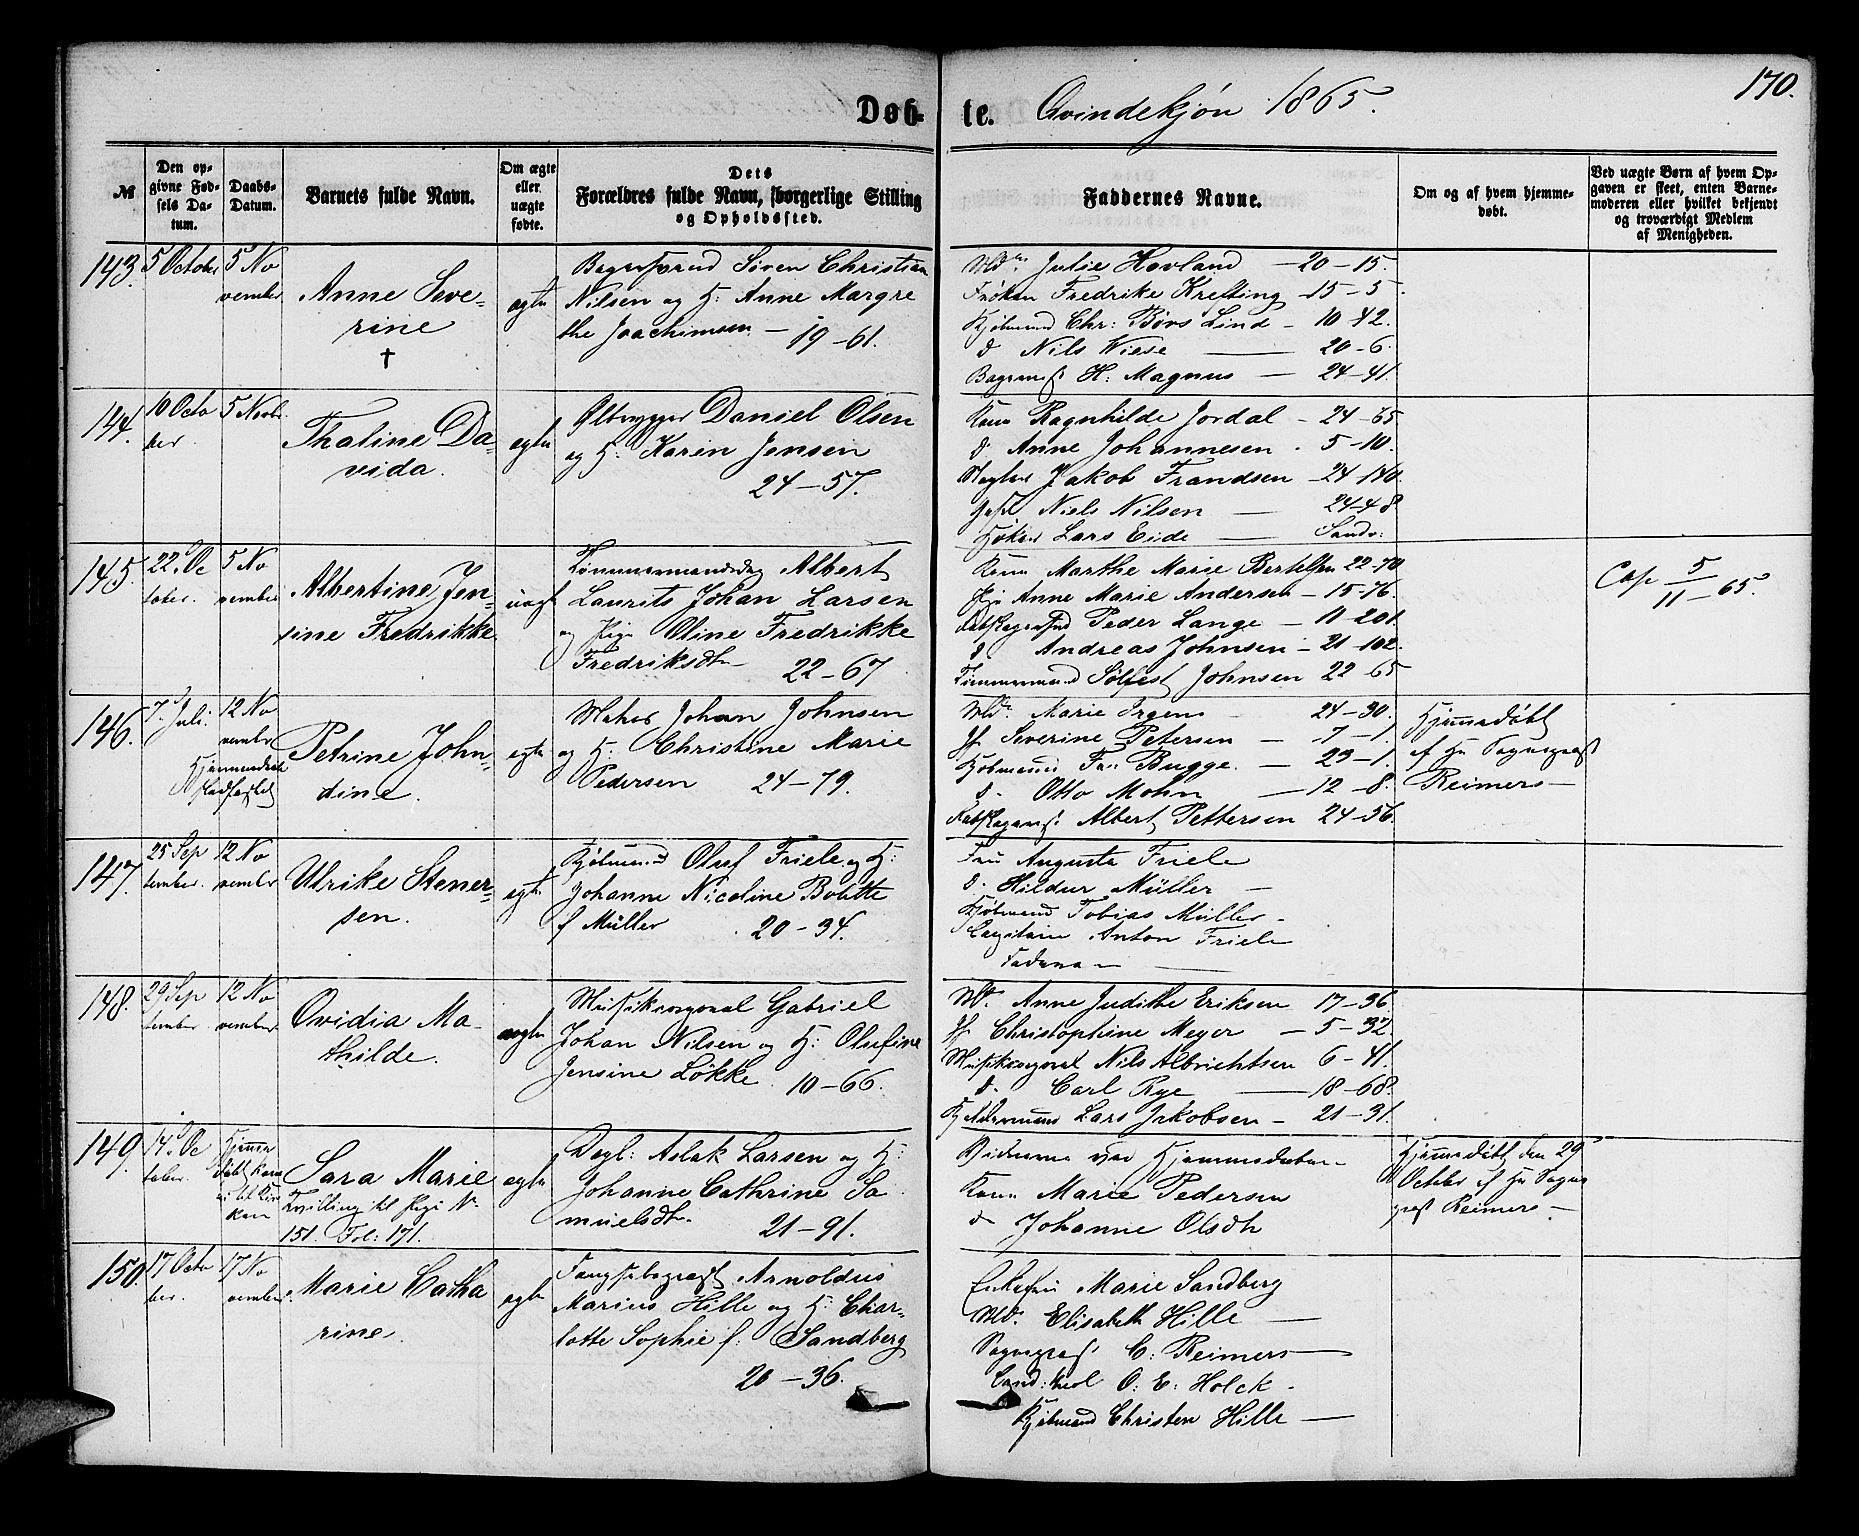 170.
Døb- te. Qvindekjøn 1865.
№
Den opgivne Fødsels Datum.
Daabs-Datum.
Barnets fulde Navn.
Om ægte eller uægte fødte.
Dets Forældres fulde Navn, borgerlige Stilling og Opholdssted.
Faddernes Navne.
Om og af hvem hjemmedøbt.
Ved uægte Børn af hvem Opgaven er skeet, enten Barnemoderen eller hvilket bekjendt og troværdigt Medlem af Menigheden.
143. 5 October 5 November
Anne Severine
†
ægte
Søren Christian
Nilsen og H: Anne Margrethe Joachimsen — 19-61.
Md. Julie Hovland — 20-15.
Frøken Fredrikke Krefting - 15-5
Kjøbmand Chr: Børs Lind - 10-42.
d Nils Wiese — 20-6.
H: Magnus — 24-41.
144. 10 October 5 Novb.
Thaline Davida.
ægte
Ølbrygger Daniel Olsen
og H: Karen Jensen
24-57.
Kone Ragnhilde Jordal - 24-65
d. Anne Johannesen - 5-10.
Jakob Frandsen - 24-140.
Niels Nilsen — 24-48
Høker Lars Eide — Sandv:
145. 22 October. 5 November
Albertine Jensine Fredrikke
uægte
Tømmermandsdag Albert
Laurits Johan Larsen
og Pige Oline Fredrikke
Fredriksdt - 22-67
Kone Marthe Marie Bertelsen 22-70
Pige Anne Marie Andersen - 15-76.
Peder Lange - 11-201
d Andreas Johnsen - 21-102.
Tømmermand Sølfest Johnsen 22-65
5/11-65.
146. 7. Juli. 12 November
Petrine Johndine.
ægte
Johan Johnsen
og H: Christine Marie
Pedersen 24-79.
Md. Marie Irgens 24-30.
Jf Severine Petersen - 7-1.
Kjøbmand Fr: Bugge. — 23-1.
d. Otto Mohn — 12-8.
Albert Pettersen 24-56.
Hjemmedøbt
af Hr Sogneprest
Reimers —
147. 25 September. 12 November
Ulrike Stenersen.
ægte
Kjøbmand Oluf Friele og H:
Johanne Nicoline Bolette
f Müller 20-34.
Fru Augusta Friele
d. Hildur Müller —
Kjøbmand Tobias Müller -
Capitain Anton Friele
Faderen —
148. 29 September 12 November
Ovidia Mathilde.
ægte
Gabriel
Johan Nilsen og H: Olufine
Jensine Løkke. 10-66.
Md. Anne Judithe Eriksen 17-36
Jf Christophine Meyer — 5-32.
Nils Albrichtsen 6-41.
d. Carl Rye — 18-68.
Lars Jakobsen - 21-31.
149. 14. October.
Hjemmedøbt
Sara Marie
Tvilling til Pige N.
151. Fol: 171.
ægte
Dagl: Aslak Larsen og H:
Johanne Cathrine Samuelsdt. 21-91.
Vidnerne ved Hjemmedaaben -
Kone Marie Pedersen
d Johanne Olsdtr
Hjemmedøbt den 29
October af Hr Sogneprest Reimers —
150. 17 October. 17 November.
Marie Catharine.
ægte
Arnoldus
Marius Hille og H: Charlotte Sophie f: Sandberg
20-36.
Enkefru Marie Sandberg
Md. Elisabeth Hille —
Sogneprest C: Reimers —
Cand: theol O: E: Holck -
Kjøbmand Christen Hille —